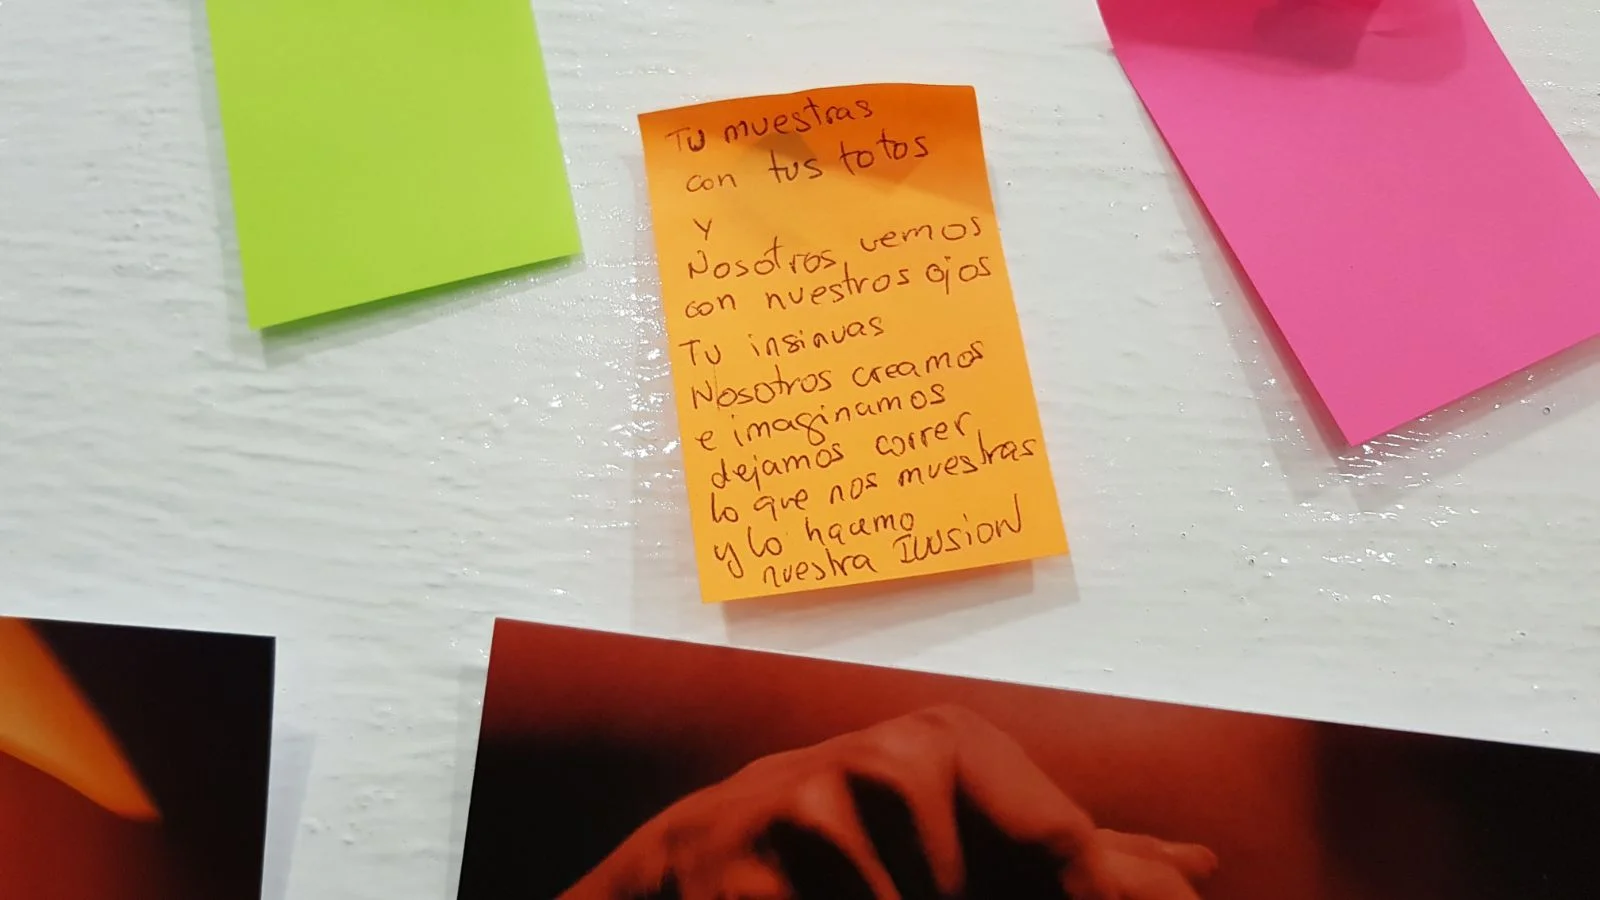 Tu muestras
con tus totos
y
Nosotros vemos
con nuestros ojos
Tu insinuas
Nosotros creamos
e imaginamos
dejamos correr
lo que nos muestras
y lo hacemo
nuestra ILUSION